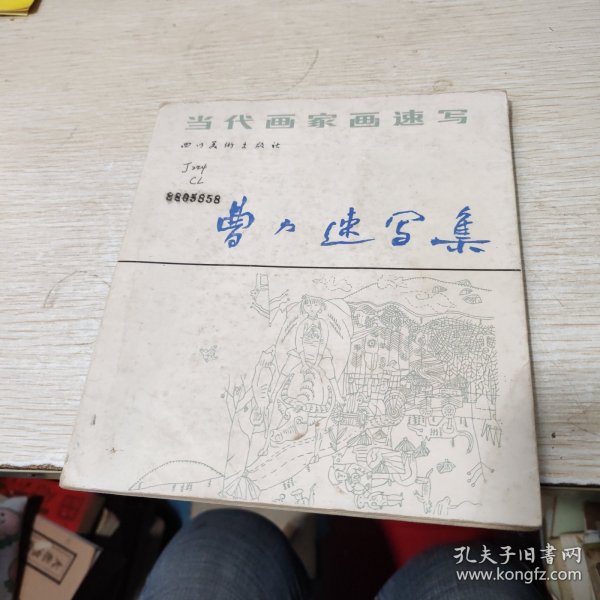 当代画家画速写
四川美術出版社
J224
CL
8803858
曹力速写集
孔夫子旧书网
www.kongfz.com